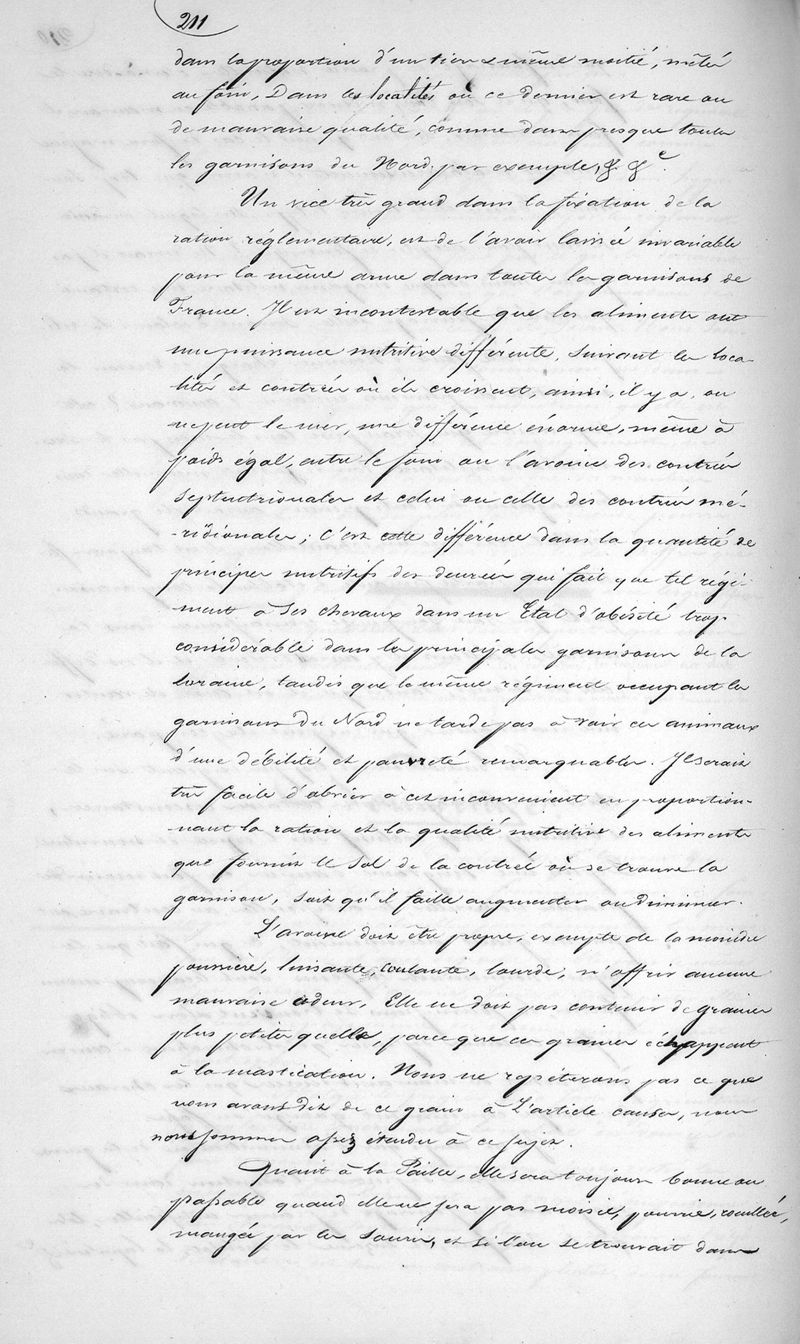 211
dans la proportion d'un tiers & même moitié, mêlés
au foin, Dans les localités où ce dernier est rare ou
de mauvaise qualité, comme dans presque toutes
les garnisons du Nord, par exemple, & &c.
Un vice très grand dans la fixation de la
ration réglementaire, est de l'avoir laissée invariable
pour la même arme dans toutes les garnisons de
France. Il est incontestable que les aliments ont
une puissance nutritive différente, suivant les loca-
lités et contrées où ils croissent, ainsi, il y a, on
ne peut le nier, une différence énorme, même à
poids égal, entre le foin ou l'avoine des contrées
septentrionales et celui ou celle des contrées mé-
-ridionales; C'est cette différence dans la quantité de
principes nutritifs des denrées qui fait que tel régi-
ment a ses chevaux dans un Etat d'obésité trop
considérable dans les principales garnisons de la
Loraine, tandis que le même régiment occupant les
garnisons du Nord ne tarde pas à voir ces animaux
d'une débilité et pauvreté remarquables. Il serait
très facile d'obvier à cet inconvenient en proportion-
nant la ration et la qualité nutritive des aliments
que fournit le Sol de la contrée où se trouve la
garnison, soit qu'il faille augmenter ou diminuer.
L'avoine doit être propre, exempte de la moindre
poussière, luisante, coulante, lourde, n'offrir aucune
mauvaise odeur, Elle ne doit pas contenir de graines
plus petites qu'elle, parce que ces graines échappent
à la mastication. Nous ne répéterons pas ce que
nous avons dit de ce grain à L'article causes, nous
nous sommes assez étendu à ce sujet.
Quant à la Paille, elle sera toujours bonne ou
passable quand elle ne sera pas moisie, pourrie, rouillée,
mangée par les souris, et si l'on se trouvait dans